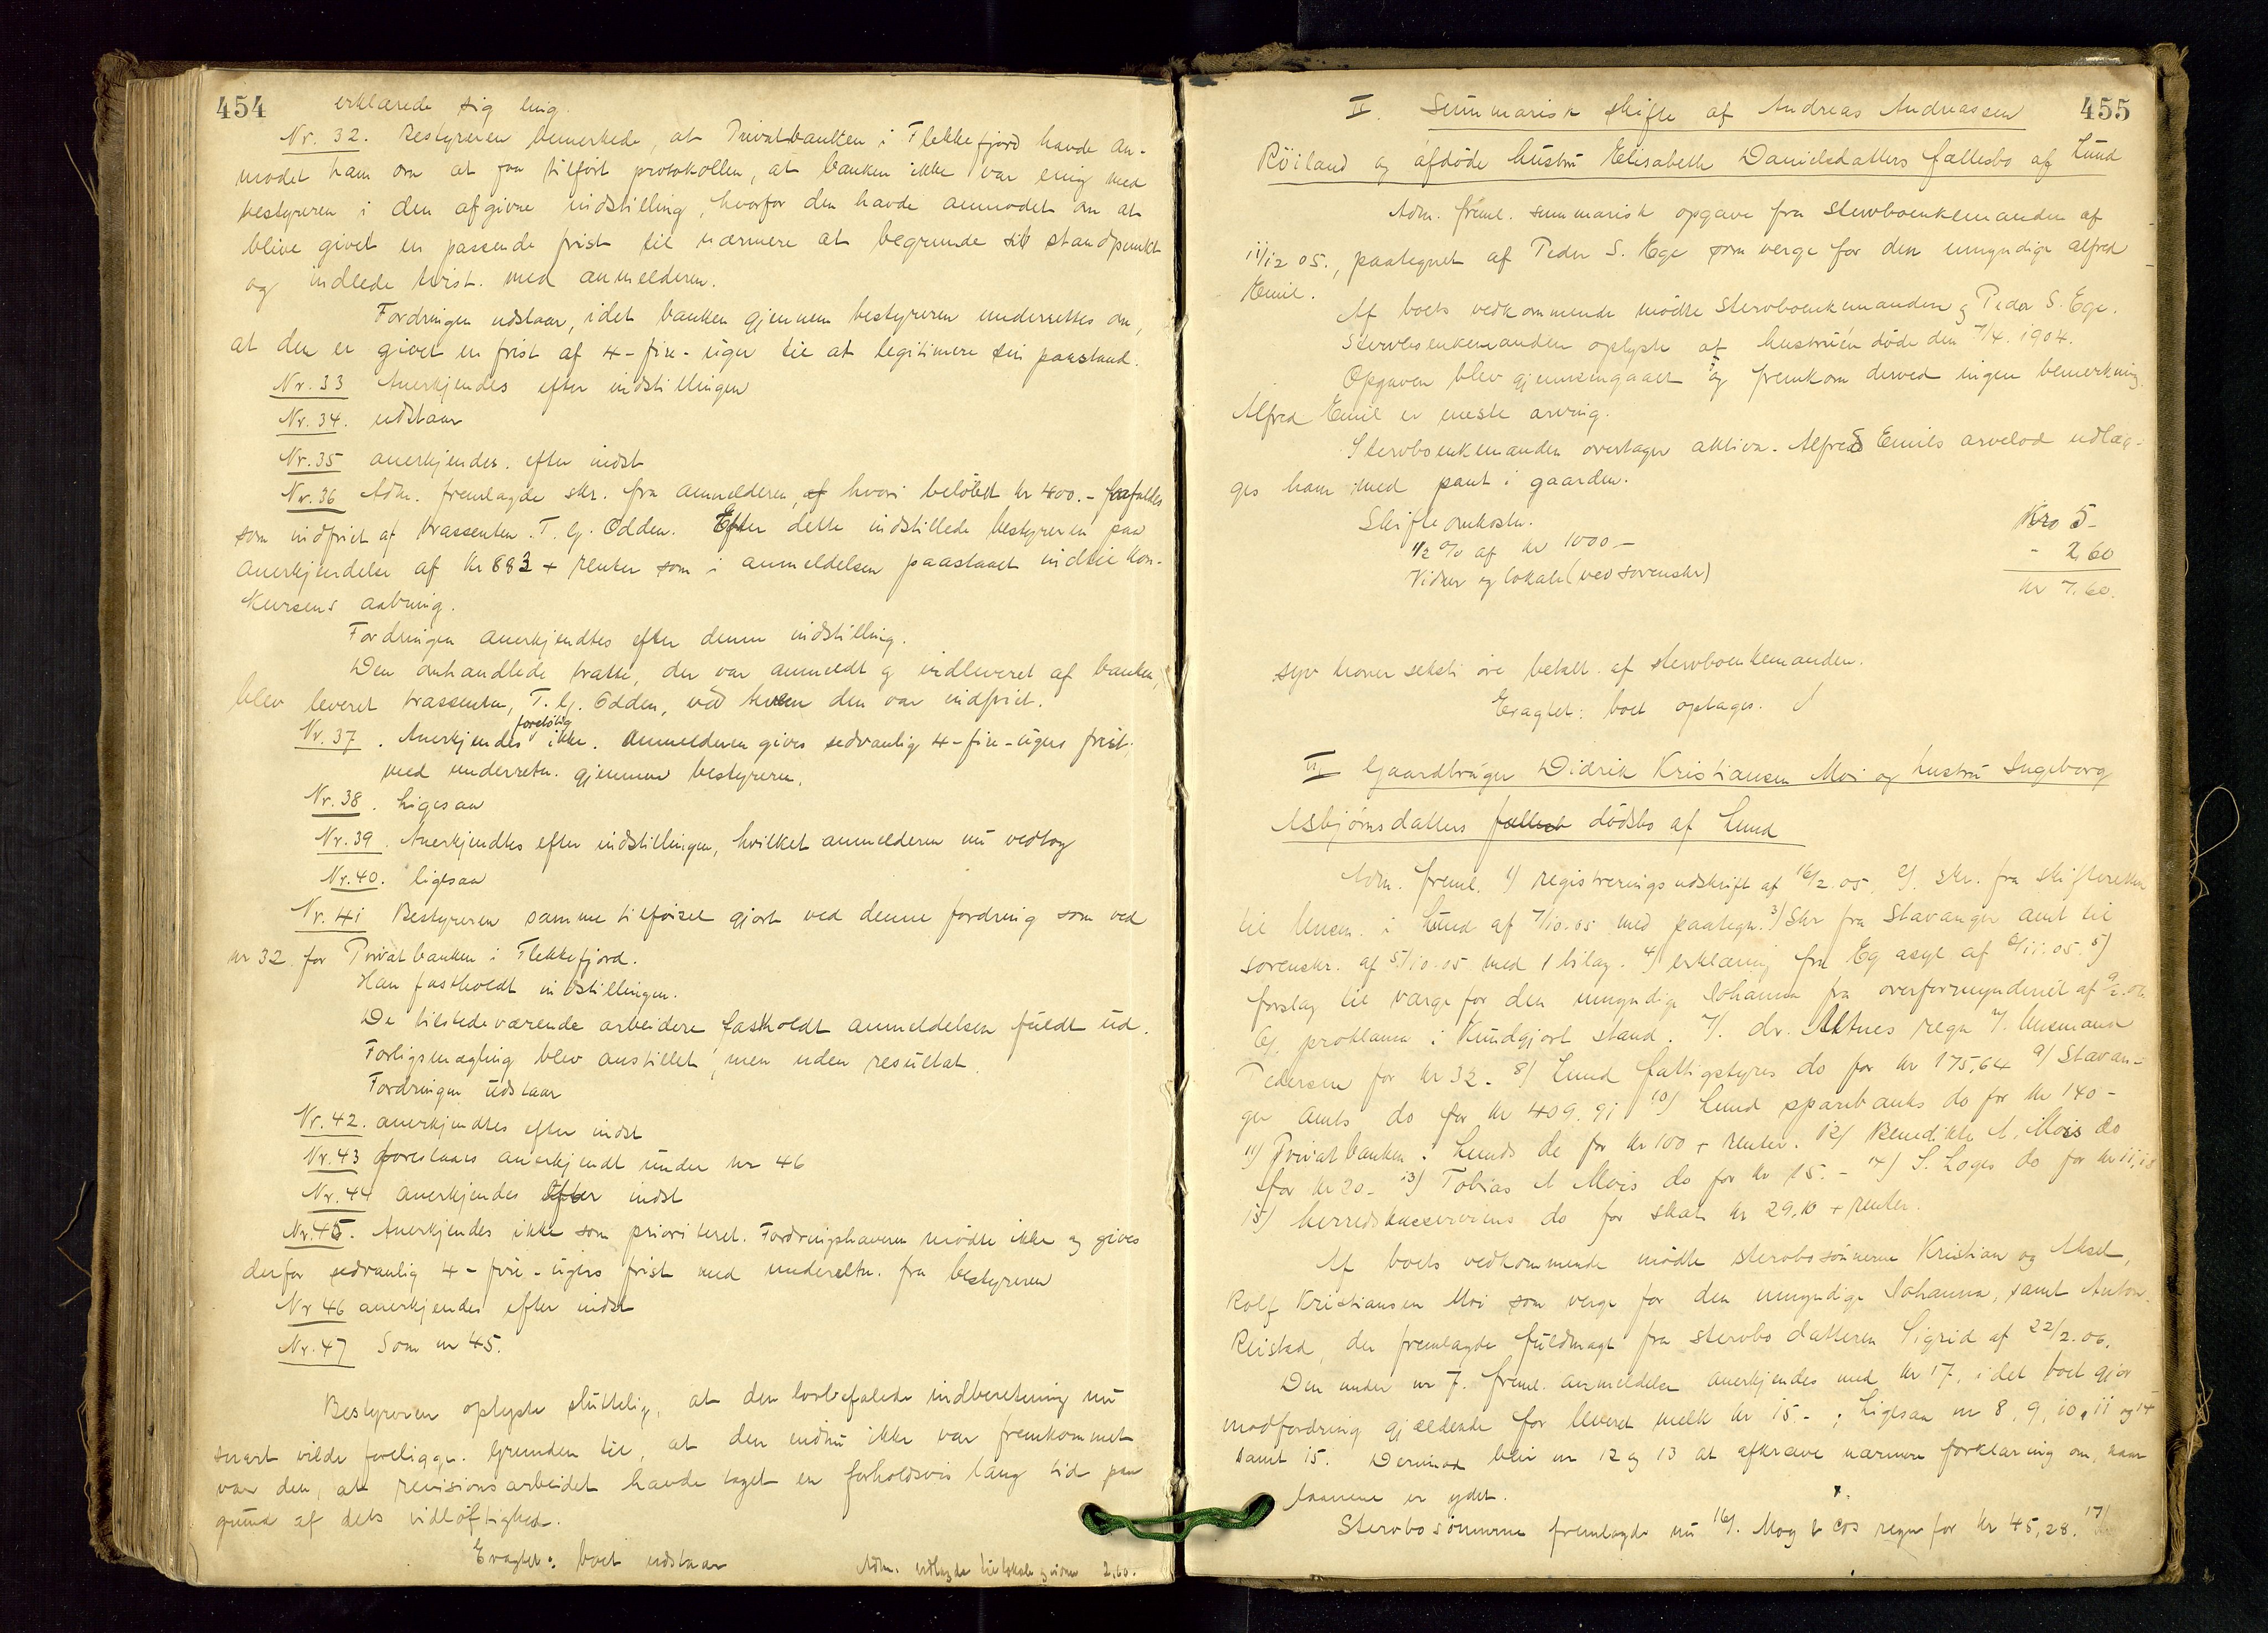 454
erklærede sig enig.
Nr. 32. Bestyreren bemerkede, at Privatbanken i Flekkefjord havde an-
modet ham om at faa tilført protokollen, at banken ikke var enig med
bestyreren i den afgivne indstilling, hvorfor den havde anmodet om at
blive givet en passende frist til nærmere at begrunde sit standpunkt
og indlede tvist med anmelderen.
Fordringen udstaar, idet banken gjennem bestyreren underrettes om,
at der er givet en frist af 4-fire-uger til at legitimere sin paastand.
Nr. 33 Anerkjendes efter indstillingen
Nr. 34. udstaar
Nr. 35 anerkjendes efter indst
Nr. 36 Adm. fremlagde skr. fra anmelderen, hvori beløbet kr 400.- frafaldes
som indfriet af trassenten T. G. Odden. Efter dette indstillede bestyreren paa
anerkjendelse af kr 883 + renter som i anmeldelsen paastaaet indtil kon-
kursens aabning.
Fordringen anerkjendtes efter denne indstilling.
Den omhandlede tratte, der var anmeldt og indleveret af banken,
blev leveret trassenten, T. G. Odden, ved hvem den var indfriet.
Nr. 37. Anerkjendes foreløbig ikke. Anmelderen gives sedvanlig 4-fire-ugers frist
med underretn. gjennem bestyreren.
Nr. 38. Ligesaa
Nr. 39. Anerkjendtes efter indstillingen, hvilket anmelderen nu vedtog
Nr. 40. ligesaa
Nr. 41 Bestyreren samme tilførsel gjort ved denne fordring som ved
nr 32 for Privatbanken i Flekkefjord.
Han fastholdt indstillingen.
De tilstedeværende arbeidere fastholdt anmeldelsen fuldt ud.
Forligsmægling blev anstillet, men uden resultat.
Fordringen udstaar
Nr. 42. anerkjendtes efter indst
Nr. 43 foreslaaes anerkjendt under nr 46
Nr. 44 anerkjendes efter indst
Nr. 45. Anerkjendes ikke som prioriteret. Fordringshaveren mødte ikke og gives
derfor sedvanlig 4-fire-ugers frist med underretn. fra bestyreren
Nr 46 anerkjendes efter indst
Nr. 47 Som nr 45.
Bestyreren oplyste sluttelig, at den lovbefalede indberetning nu
snart vilde foreligge. Grunden til, at den endnu ikke var fremkommet
var den, at revisionsarbeidet havde taget en forholdsvis lang tid paa
grund af dets vidløftighed.
Eragtet: boet udstaar
Adm. udlagde til lokale og vidner 2,60.
455
II. Summarisk skifte af Andreas Andreassen
Röiland og afdøde hustru Elisabeth Danielsdatters fællesbo af Lund
Adm. freml. summarisk opgave fra stervboenkemanden af
11/12 05., paategnet af Peder S. Ege som verge for den umyndige Alfred
Emil.
Af boets vedkommende mødte stervboenkemanden og Peder S. Ege.
Stervboenkemanden oplyste at hustruen døde den 7/4. 1904.
Opgaven blev gjennemgaaet og fremkom derved ingen bemerkning.
Alfred Emil er eneste arving.
Stervboenkemanden overtager aktiva. Alfred Emils arvelod udlæg-
ges ham med pant i gaarden.
Skifteomkostn.
1/2 % af kr 1000 - Kro 5-
Vidner og lokale (ved sorenskr) - 2,60
kr 7,60.
syv kroner seksti øre betalt af stervboenkemanden.
Eragtet: boet optages.
III Gaardbruger Didrik Kristiansen Moi og hustru Ingeborg
Asbjørnsdatters dødsbo af Lund
Adm. freml. 1) registreringsudskrift af 16/2.05, 2). skr. fra skifteretten
til lensm. i Lund af 7/10.05 med paategn. 3) Skr fra Stavanger amt til
sorenskr. af 5/10.05 med 1 bilag. 4) erklæring fra Eg asyl af 11.05. 5)
forslag til værge for den umyndige Johanna fra overformynderiet af
6). proklama i kundgjort stand. 7). dr. regn
Pedersen for kr 32. 8) Lund fattigstyres do for kr 175,64 9) Stavan-
ger amts do for kr 409.91 10) Lund sparebanks do for kr 140-
11) Privatbanken i Lunds do for kr 100 + renter. 12) Benedikte A. Mois do
for kr 20- 13) Tobias A Mois do for kr 15.- 14) S. Loges do for kr 11,18
15) herredskassererens do for skat kr 29.10 + renter.
Af boets vedkommende mødte stervbosønnerne Kristian og Aksel,
Rolf Kristiansen Moi som verge for den umyndige Johanna, samt Anton
Reistad, der fremlagde fuldmagt fra stervbodatteren Sigrid af 22/2.06.
Den under nr 7. freml. anmeldelse anerkjendes med kr 17, idet boet gjør
modfordring gjældende for leveret melk kr 15.-; Ligesaa nr 8, 9, 10, 11 og 14
samt 15. Derimod blir nr 12 og 13 at afkræve nærmere forklaring om, naar
laanene er ydet.
Stervbosønnerne fremlagde nu 16). Moy & Cos regn for kr 45,28. 17)